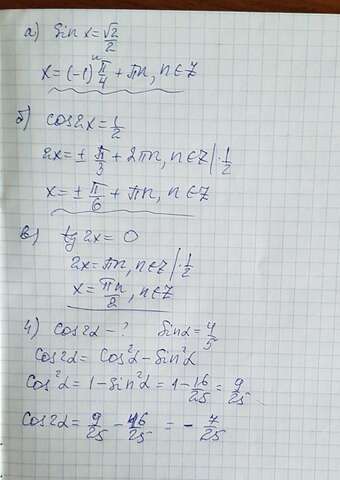 а) Sin x = √2/2
x = (-1)ⁿ π/4 + πn, n∈Z
б) cos2x = 1/2
2x = ± π/3 + 2πn, n∈Z | · 1/2
x = ± π/6 + πn, n∈Z
в) tg 2x = 0
2x = πn, n∈Z | · 1/2
x = πn/2, n∈Z
4) Cos2α - ? Sinα = 4/5
Cos2α = Cos²α - Sin²α
Cos²α = 1 - Sin²α = 1 - 16/25 = 9/25
Cos2α = 9/25 - 16/25 = - 7/25